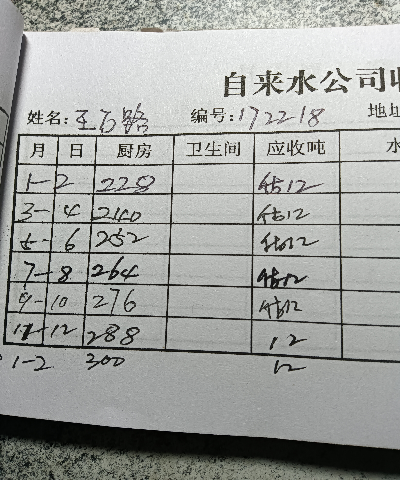 自来水公司收
姓名: 王石路 编号: 172218 地址
月 日 厨房 卫生间 应收吨 水
1-2 228 估12
3-4 240 估12
5-6 252 估12
7-8 264 估12
9-10 276 估12
11-12 288 12
1-2 300 12